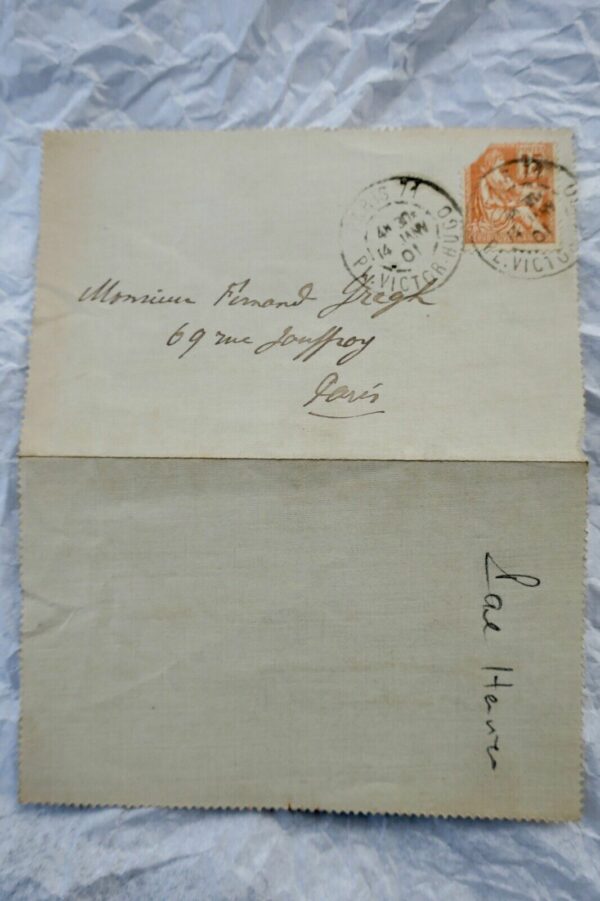 PARIS 71
4E 30
14 JANV
01
PL. VICTOR HUGO
15
PL. VICTOR HUGO
Monsieur Fernand Gregh
69 rue Jouffroy
Paris